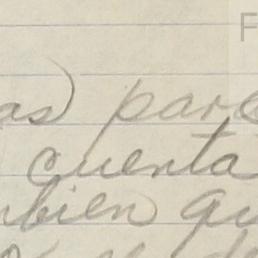 F
as) pare
cuenta
mbien qu